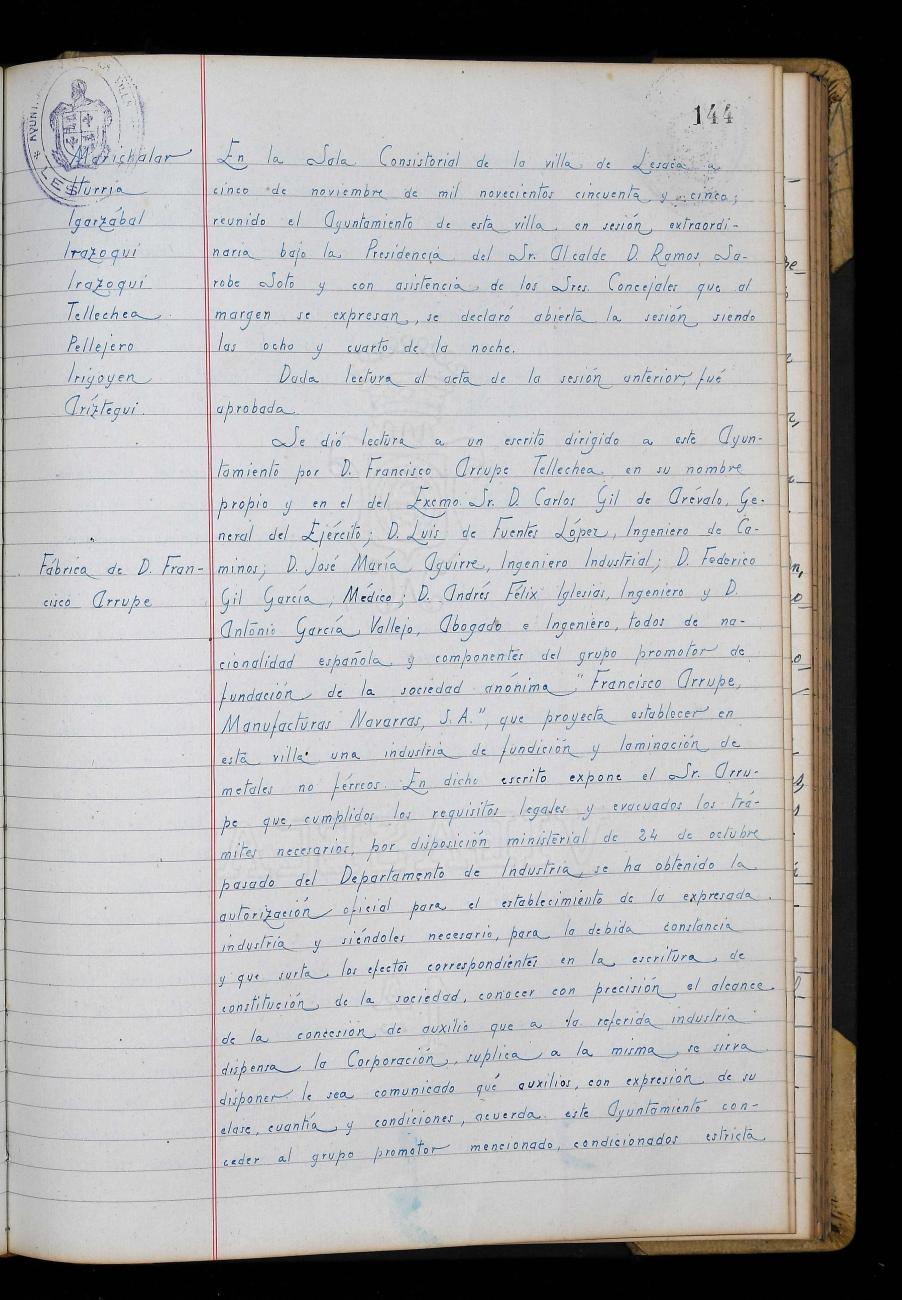 144
Marichalar
Iturria
Igarzábal
Irazoqui
Irazoqui
Tellechea
Pellejero
Irigoyen
Aríztegui.
Fábrica de D. Fran-
cisco Arrupe
En la Sala Consistorial de la villa de Lesaca a
cinco de noviembre de mil novecientos cincuenta y cinco;
reunido el Ayuntamiento de esta villa en sesión extraordi-
naria bajo la Presidencia del Sr. Alcalde D. Ramos Sa-
robe Soto y con asistencia de los Sres. Concejales que al
margen se expresan, se declaró abierta la sesión siendo
las ocho y cuarto de la noche.
Dada lectura al acta de la sesión anterior, fué
aprobada.
Se dió lectura a un escrito dirigido a este Ayun-
tamiento por D. Francisco Arrupe Tellechea en su nombre
propio y en el del Excmo. Sr. D. Carlos Gil de Arévalo, Ge-
neral del Ejército; D. Luis de Fuentes López, Ingeniero de Ca-
minos; D. José María Aguirre, Ingeniero Industrial; D. Federico
Gil García, Médico; D. Andrés Félix Iglesias, Ingeniero y D.
Antonio García Vallejo, Abogado e Ingeniero, todos de na-
cionalidad española y componentes del grupo promotor de
fundación de la sociedad anónima "Francisco Arrupe,
Manufacturas Navarras, S.A.", que proyecta establecer en
esta villa una industria de fundición y laminación de
metales no férreos. En dicho escrito expone el Sr. Arru-
pe que, cumplidos los requisitos legales y evacuados los trá-
mites necesarios, por disposición ministerial de 24 de octubre
pasado del Departamento de Industria, se ha obtenido la
autorización oficial para el establecimiento de la expresada
industria y siéndoles necesario, para la debida constancia
y que surta los efectos correspondientes en la escritura de
constitución de la sociedad, conocer con precisión el alcance
de la concesión de auxilio que a la referida industria
dispensa la Corporación, suplica a la misma se sirva
disponer le sea comunicado qué auxilios, con expresión de su
clase, cuantía y condiciones, acuerda este Ayuntamiento con-
ceder al grupo promotor mencionado, condicionados estricta